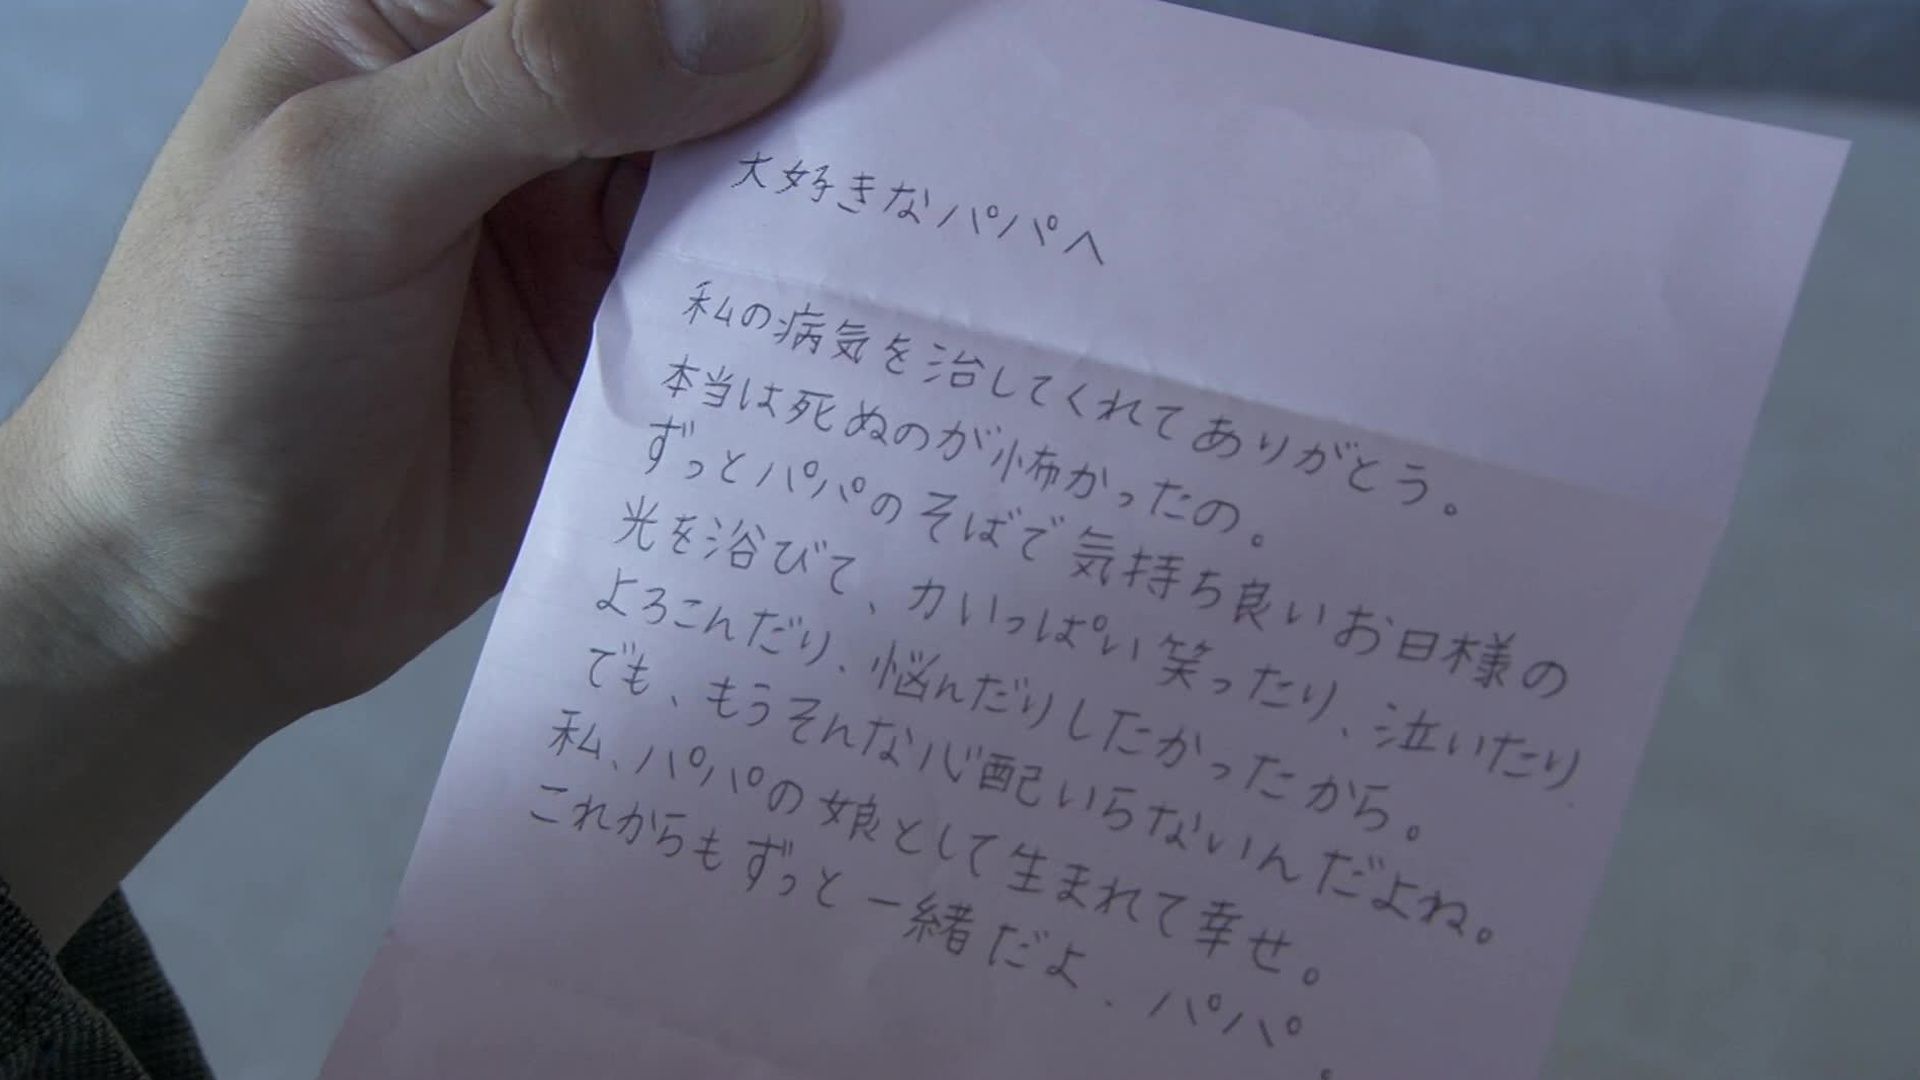 大好きなパパへ
私の病気を治してくれてありがとう。
本当は死ぬのが怖かったの。
ずっとパパのそばで気持ち良いお日様の
光を浴びて、力いっぱい笑ったり、泣いたり
よろこんだり、悩んだりしたかったから。
でも、もうそんな心配いらないんだよね。
私、パパの娘として生まれて幸せ。
これからもずっと一緒だよ、パパ。